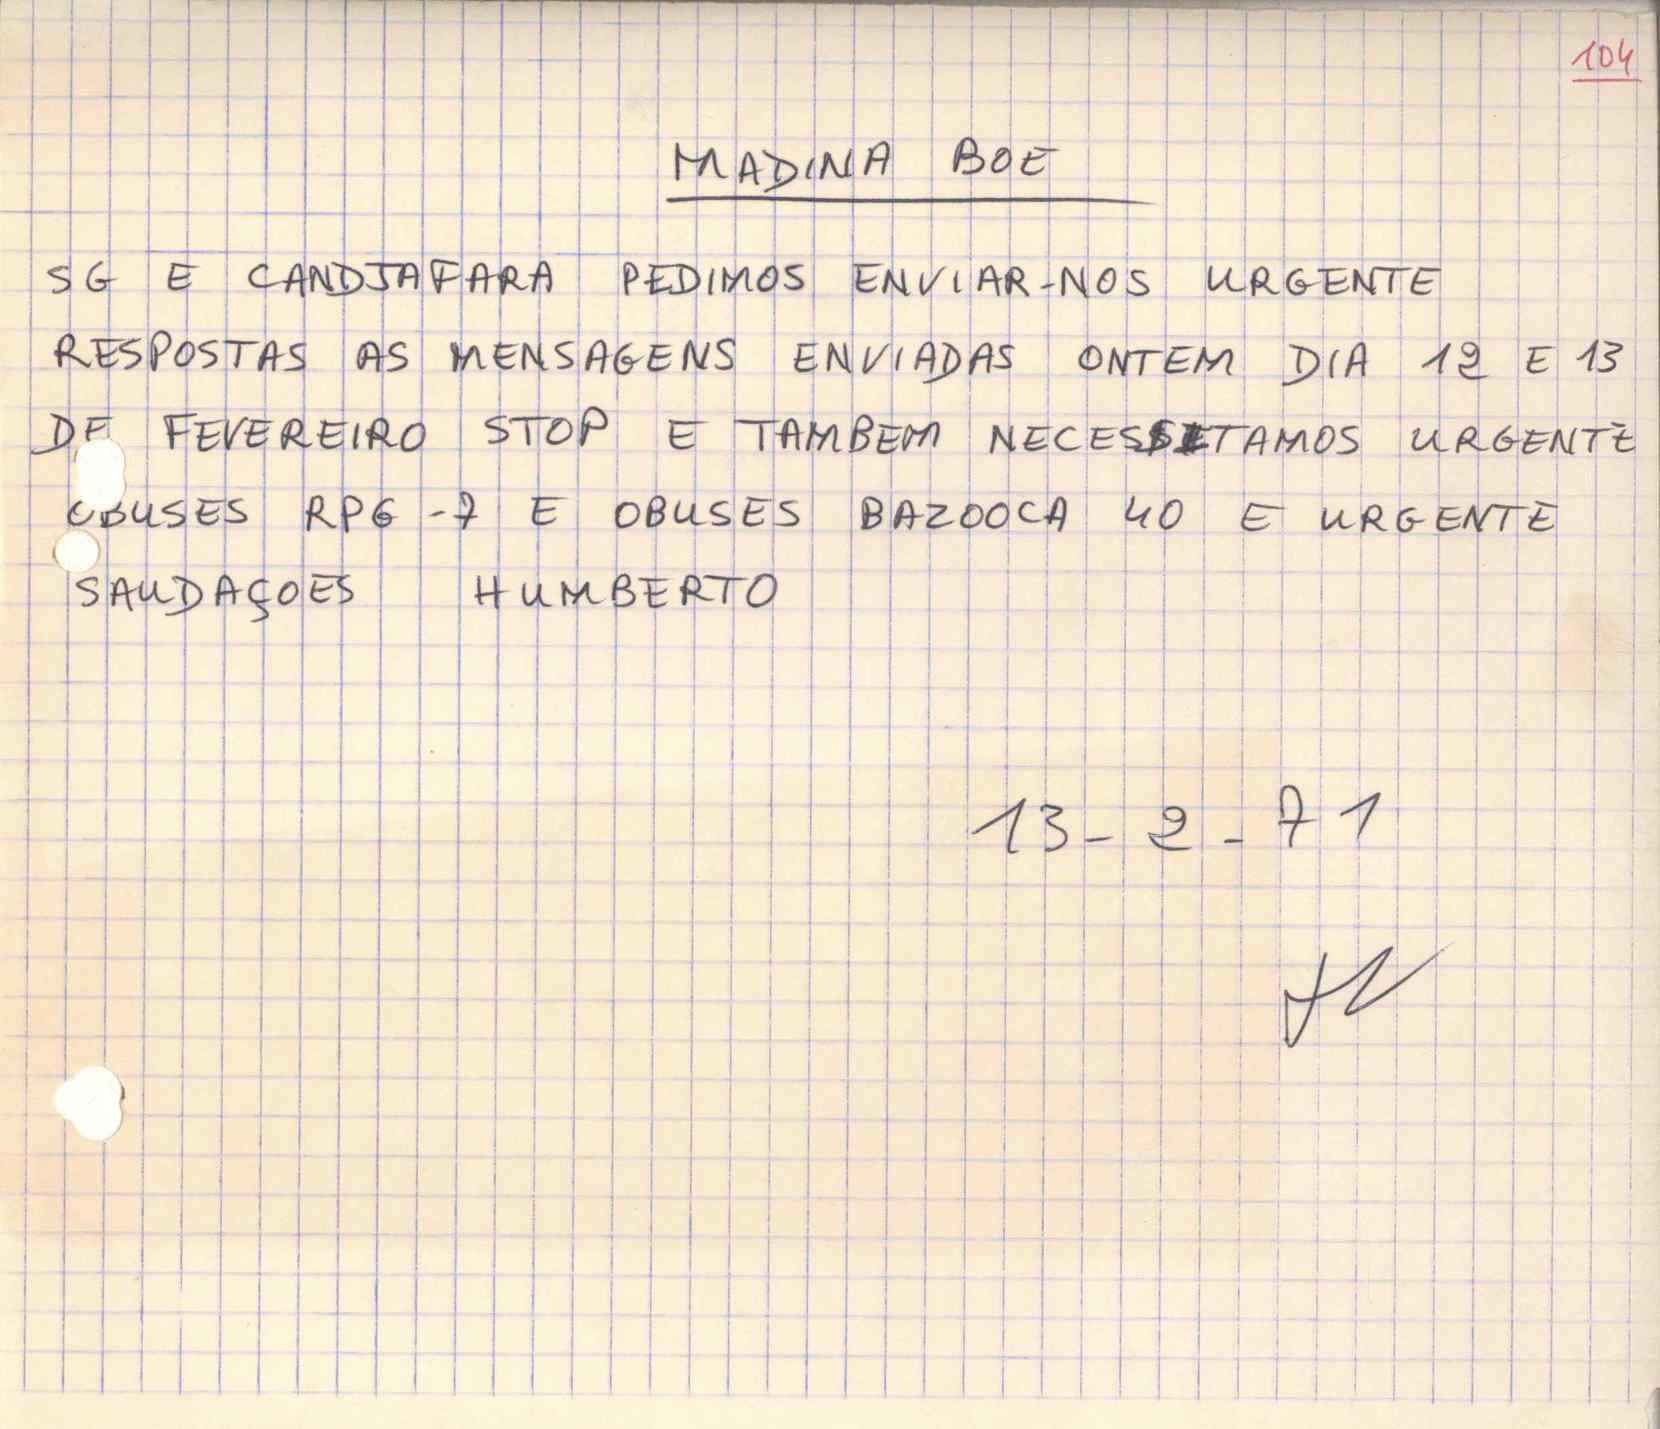 104
MADINA BOE
SG E CANDJAFARA PEDIMOS ENVIAR-NOS URGENTE
RESPOSTAS AS MENSAGENS ENVIADAS ONTEM DIA 12 E 13
DE FEVEREIRO STOP E TAMBEM NECESSITAMOS URGENTE
OBUSES RPG-7 E OBUSES BAZOOCA 40 E URGENTE
SAUDAÇOES HUMBERTO
13-2-71